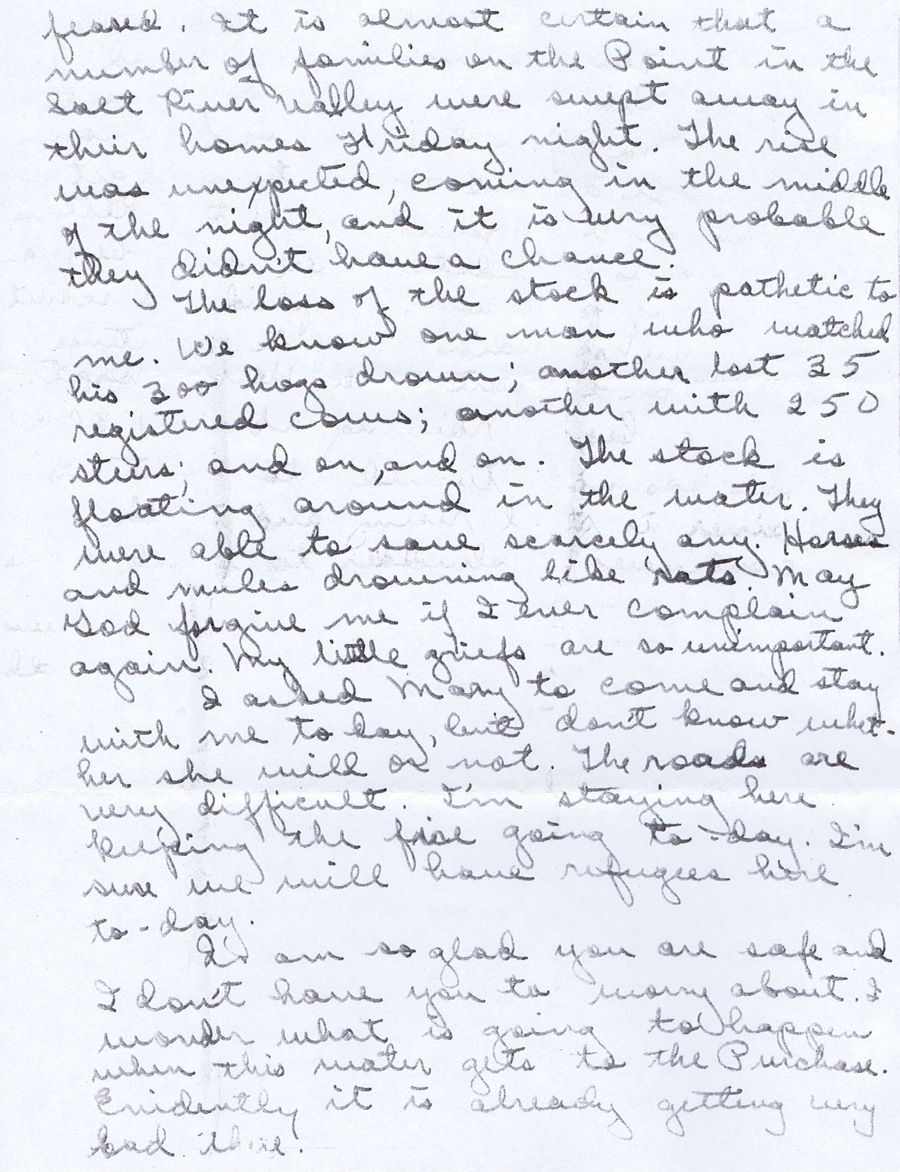 feased. It is almost certain that a
number of families on the Point in the
Salt River Valley were swept away in
their homes Friday night. The rise
was unexpected, coming in the middle
of the night, and it is very probable
they didn't have a chance.
The loss of the stock is pathetic to
me. We know one man who watched
his 300 hogs drown; another lost 35
registered cows; another with 250
steers; and on, and on. The stock is
floating around in the water. They
were able to save scarcely any. Horses
and mules drowning like rats. May
God forgive me if I ever complain
again. My little griefs are so unimportant.
I asked Mary to come and stay
with me to-day, but don't know whet-
her she will or not. The roads are
very difficult. I'm staying here
keeping the fire going to-day. I'm
sure we will have refugees here
to-day.
I am so glad you are safe and
I don't have you to worry about. I
wonder what is going to happen
when this water gets to the Purchase.
Evidently it is already getting very
bad there.